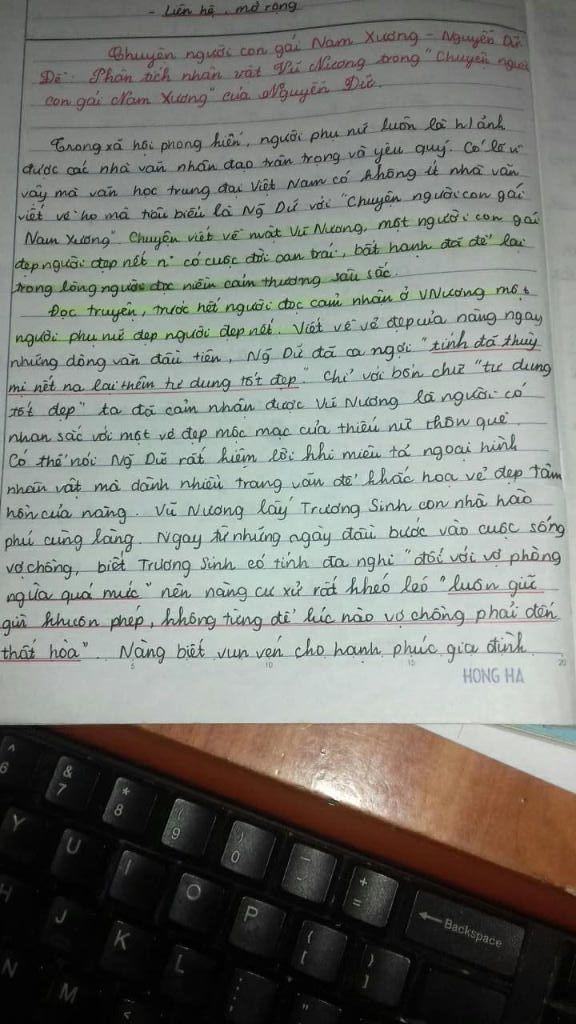 - Liên hệ, mở rộng
Chuyện người con gái Nam Xương - Nguyễn Dữ
Đề: Phân tích nhân vật Vũ Nương trong "Chuyện người
con gái Nam Xương" của Nguyễn Dữ.
Trong xã hội phong kiến, người phụ nữ luôn là h/ảnh
được các nhà văn nhân đạo trân trọng và yêu quý. Có lẽ vì
vậy mà văn học trung đại Việt Nam có không ít nhà văn
viết về họ mà tiêu biểu là Ng Dữ với "Chuyện người con gái
Nam Xương". Chuyện viết về nvật Vũ Nương, một người con gái
đẹp người đẹp nết n' có cuộc đời oan trái, bất hạnh đã để lại
trong lòng người đọc niềm cảm thương sâu sắc.
Đọc truyện, trước hết người đọc cảm nhận ở VNương một
người phụ nữ đẹp người đẹp nết. Viết về vẻ đẹp của nàng ngay
những dòng văn đầu tiên, Ng Dữ đã ca ngợi "tính đã thuỳ
mị nết na lại thêm tư dung tốt đẹp". Chỉ với bốn chữ "tư dung
tốt đẹp" ta đã cảm nhận được Vũ Nương là người có
nhan sắc với một vẻ đẹp mộc mạc của thiếu nữ thôn quê.
Có thể nói Ng Dữ rất kiệm lời khi miêu tả ngoại hình
nhân vật mà dành nhiều trang văn để khắc họa vẻ đẹp tâm
hồn của nàng. Vũ Nương lấy Trương Sinh con nhà hào
phú cùng làng. Ngay từ những ngày đầu bước vào cuộc sống
vợ chồng, biết Trương Sinh có tính đa nghi "đối với vợ phòng
ngừa quá mức" nên nàng cư xử rất khéo léo "luôn giữ
gìn khuôn phép, không từng để lúc nào vợ chồng phải đến
thất hòa". Nàng biết vun vén cho hạnh phúc gia đình
5 10 15 20
HONG HA
^
6
&
7
*
8
(
9
)
0
-
+
=
Backspace
Y
U
I
O
P
{
[
}
]
H
J
K
L
:
;
"
N
M
<